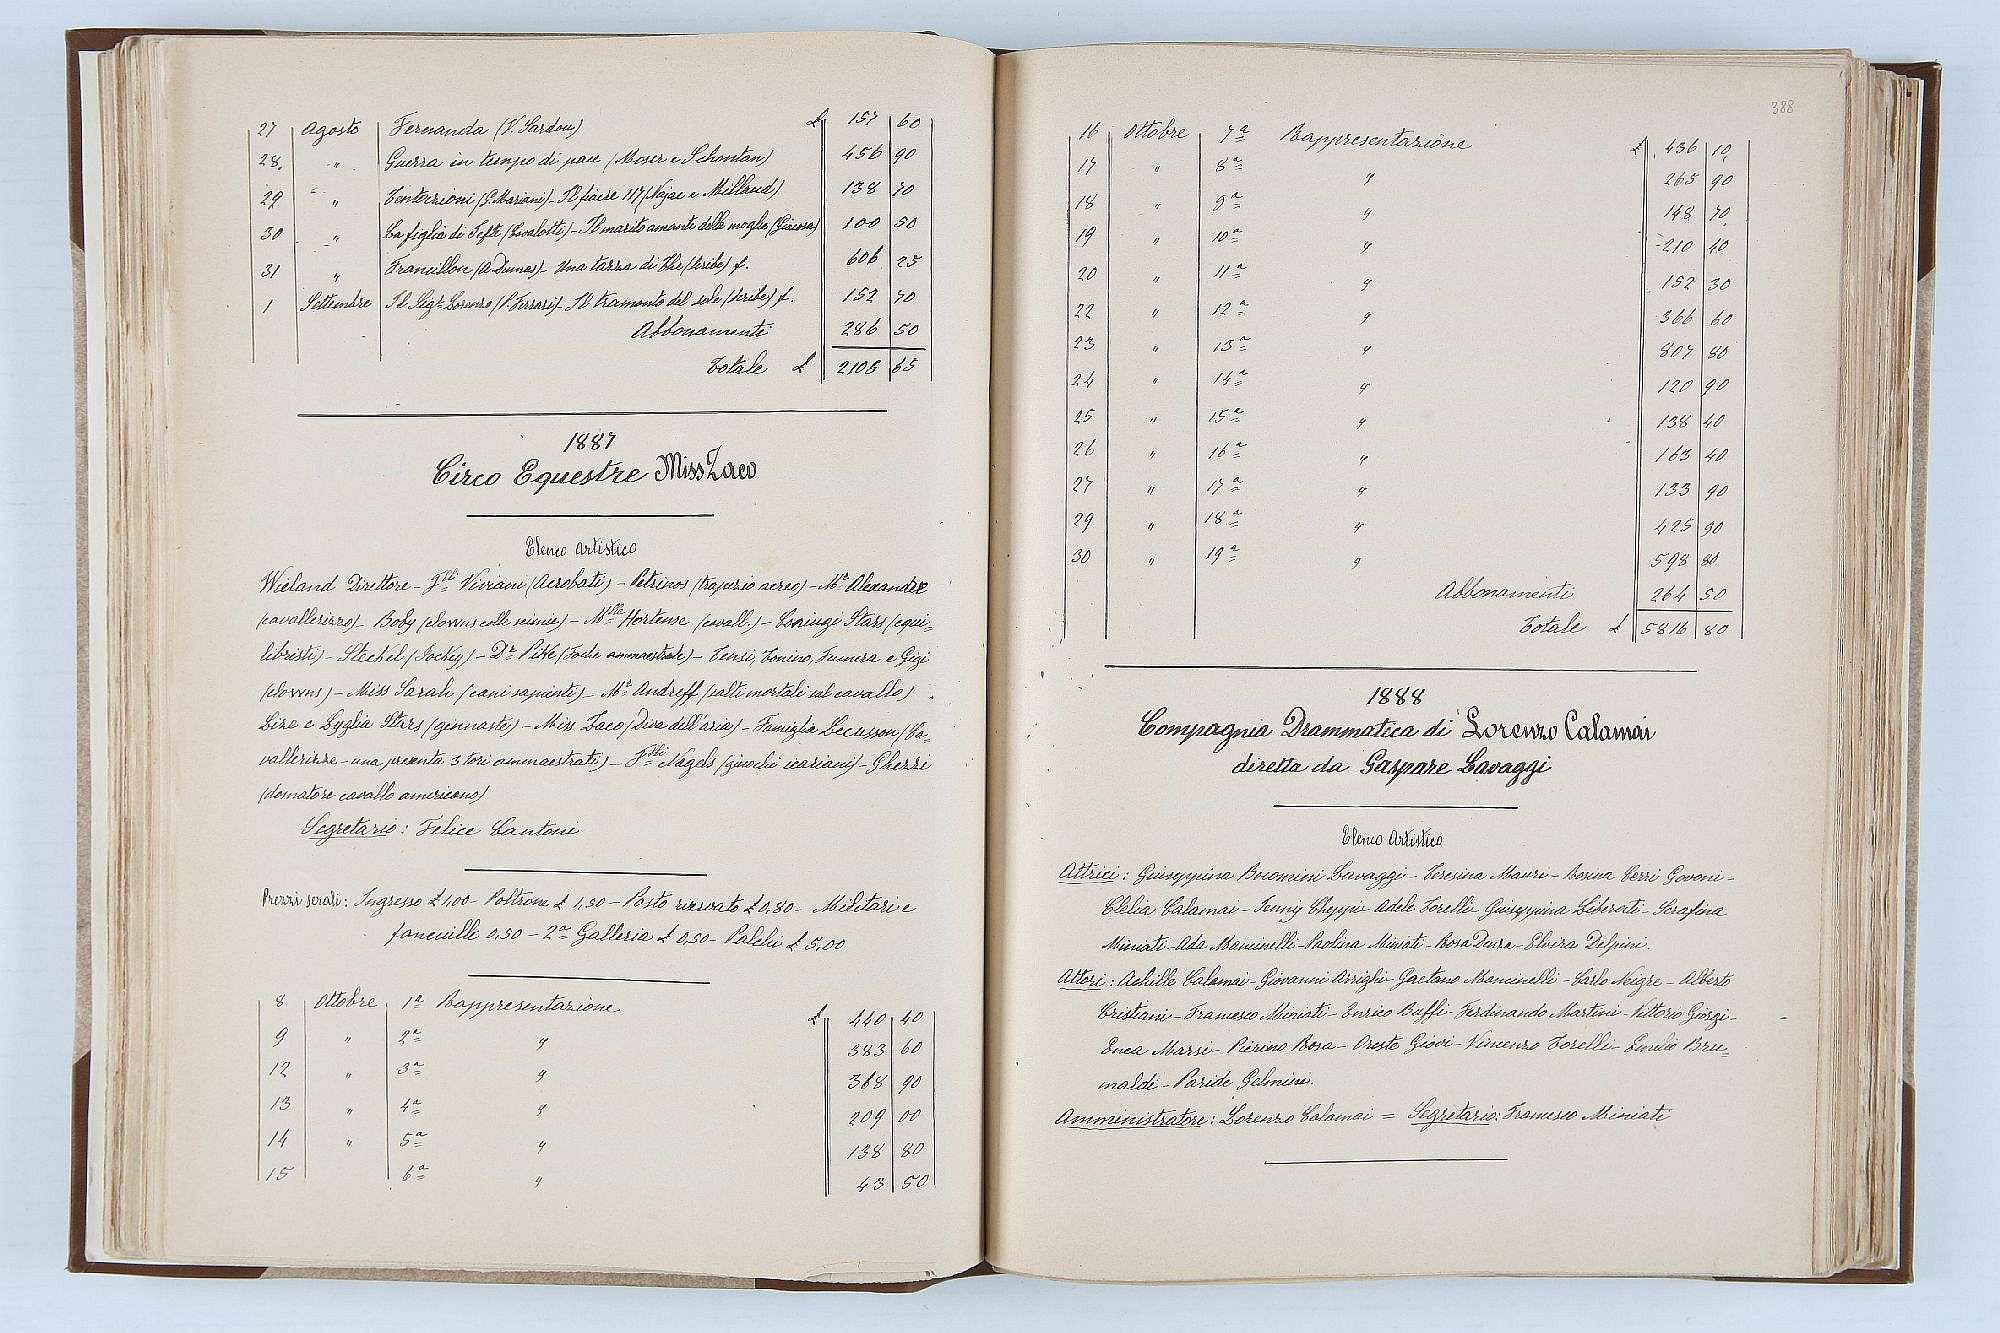 27 Agosto Fernanda (V. Sardou) £ 157 60
28 " Guerra in tempo di pace (Moser e Schontan) 456 90
29 " Tentazioni (G. Mariani) - Il fiacre 117 (Najac e Millaud) 138 70
30 " La figlia di Jefte (Cavalotti) - Il marito amante della moglie (Giacosa) 100 50
31 " Francillon (A Dumas) - Una tazza di thè (Scribe) f. 606 25
1 Settembre Il Sigr Lorenzo (P. Ferrari) - Il tramonto del sole (Scribe) f. 152 70
Abbonamenti 286 50
Totale £ 65
1887
Circo Equestre Miss Zaeo
Elenco Artistico
Wieland Direttore - Viviani (Acrobati) - Petrinos (trapezio aereo) - Mr Alexandre
(cavallerizzo) - Boby (clowns colle scimie) - Mlle Hortense (cavall.) - Stars (equi=
libristi) - Stechel (Jockey) - Dr (foche ammaestrate) - Tonino, e Gigi
(clowns) - Miss Sarah (cani sapienti) - Mr Andreff (salti mortali sul cavallo)
Liza e Stars (ginnaste) - Miss Zaeo (Diva dell'aria) - Famiglia Lecusson (Ca=
vallerizze - una presenta 3 tori ammaestrati) - Flli Nagels (giochi icariani) - Ghezzi
(domatore cavallo americano)
Segretario: Felice Cantoni
Prezzi serali: Ingresso £ 1,00 - Poltrone £ 1,50 - Posto riservato £ 0,80 - Militari e
fanciulli 0,50 - 2a Galleria £ 0,50 - Palchi £ 5,00
8 Ottobre 1a Rappresentazione £ 440 40
9 " 2a " 383 60
12 " 3a " 368 90
13 " 4a " 209 00
14 " 5a " 138 80
15 6a " 43 50
388
16 Ottobre 7a Rappresentazione £ 436 10
17 " 8a " 265 90
18 " 9a " 148 70
19 " 10a " 210 40
20 " 11a " 152 30
22 " 12a " 366 60
23 " 13a " 807 80
24 " 14a " 120 90
25 " 15a " 138 40
26 " 16a " 163 40
27 " 17a " 133 90
29 " 18a " 425 90
30 " 19a " 598 80
Abbonamenti 264 50
Totale £ 5816 80
1888
Compagnia Drammatica di Lorenzo Calamai
diretta da Gaspare Lavaggi
Elenco Artistico
Attrici: Giuseppina Lavaggi - Teresina Mauri - Rosina Govoni -
Clelia Calamai - Jenny Cheppi - Adele Torelli - Giuseppina Liberati - Serafina
Miniati - Ada Mancinelli - Paolina Miniati - Rosa Duse - Elvira Delpini.
Attori: Achille Calamai - Giovanni Arrighi - Gaetano Mancinelli - Carlo Neigre - Alberto
Cristiani - Francesco Miniati - Enrico Buffi - Ferdinando Martini - Vittorio Giorgi -
Enea Marsi - Pierino Rosa - Oreste Giovi - Vincenzo Torelli - Emilio Bru=
naldi - Paride Gelmini.
Amministratore: Lorenzo Calamai = Segretario: Francesco Miniati